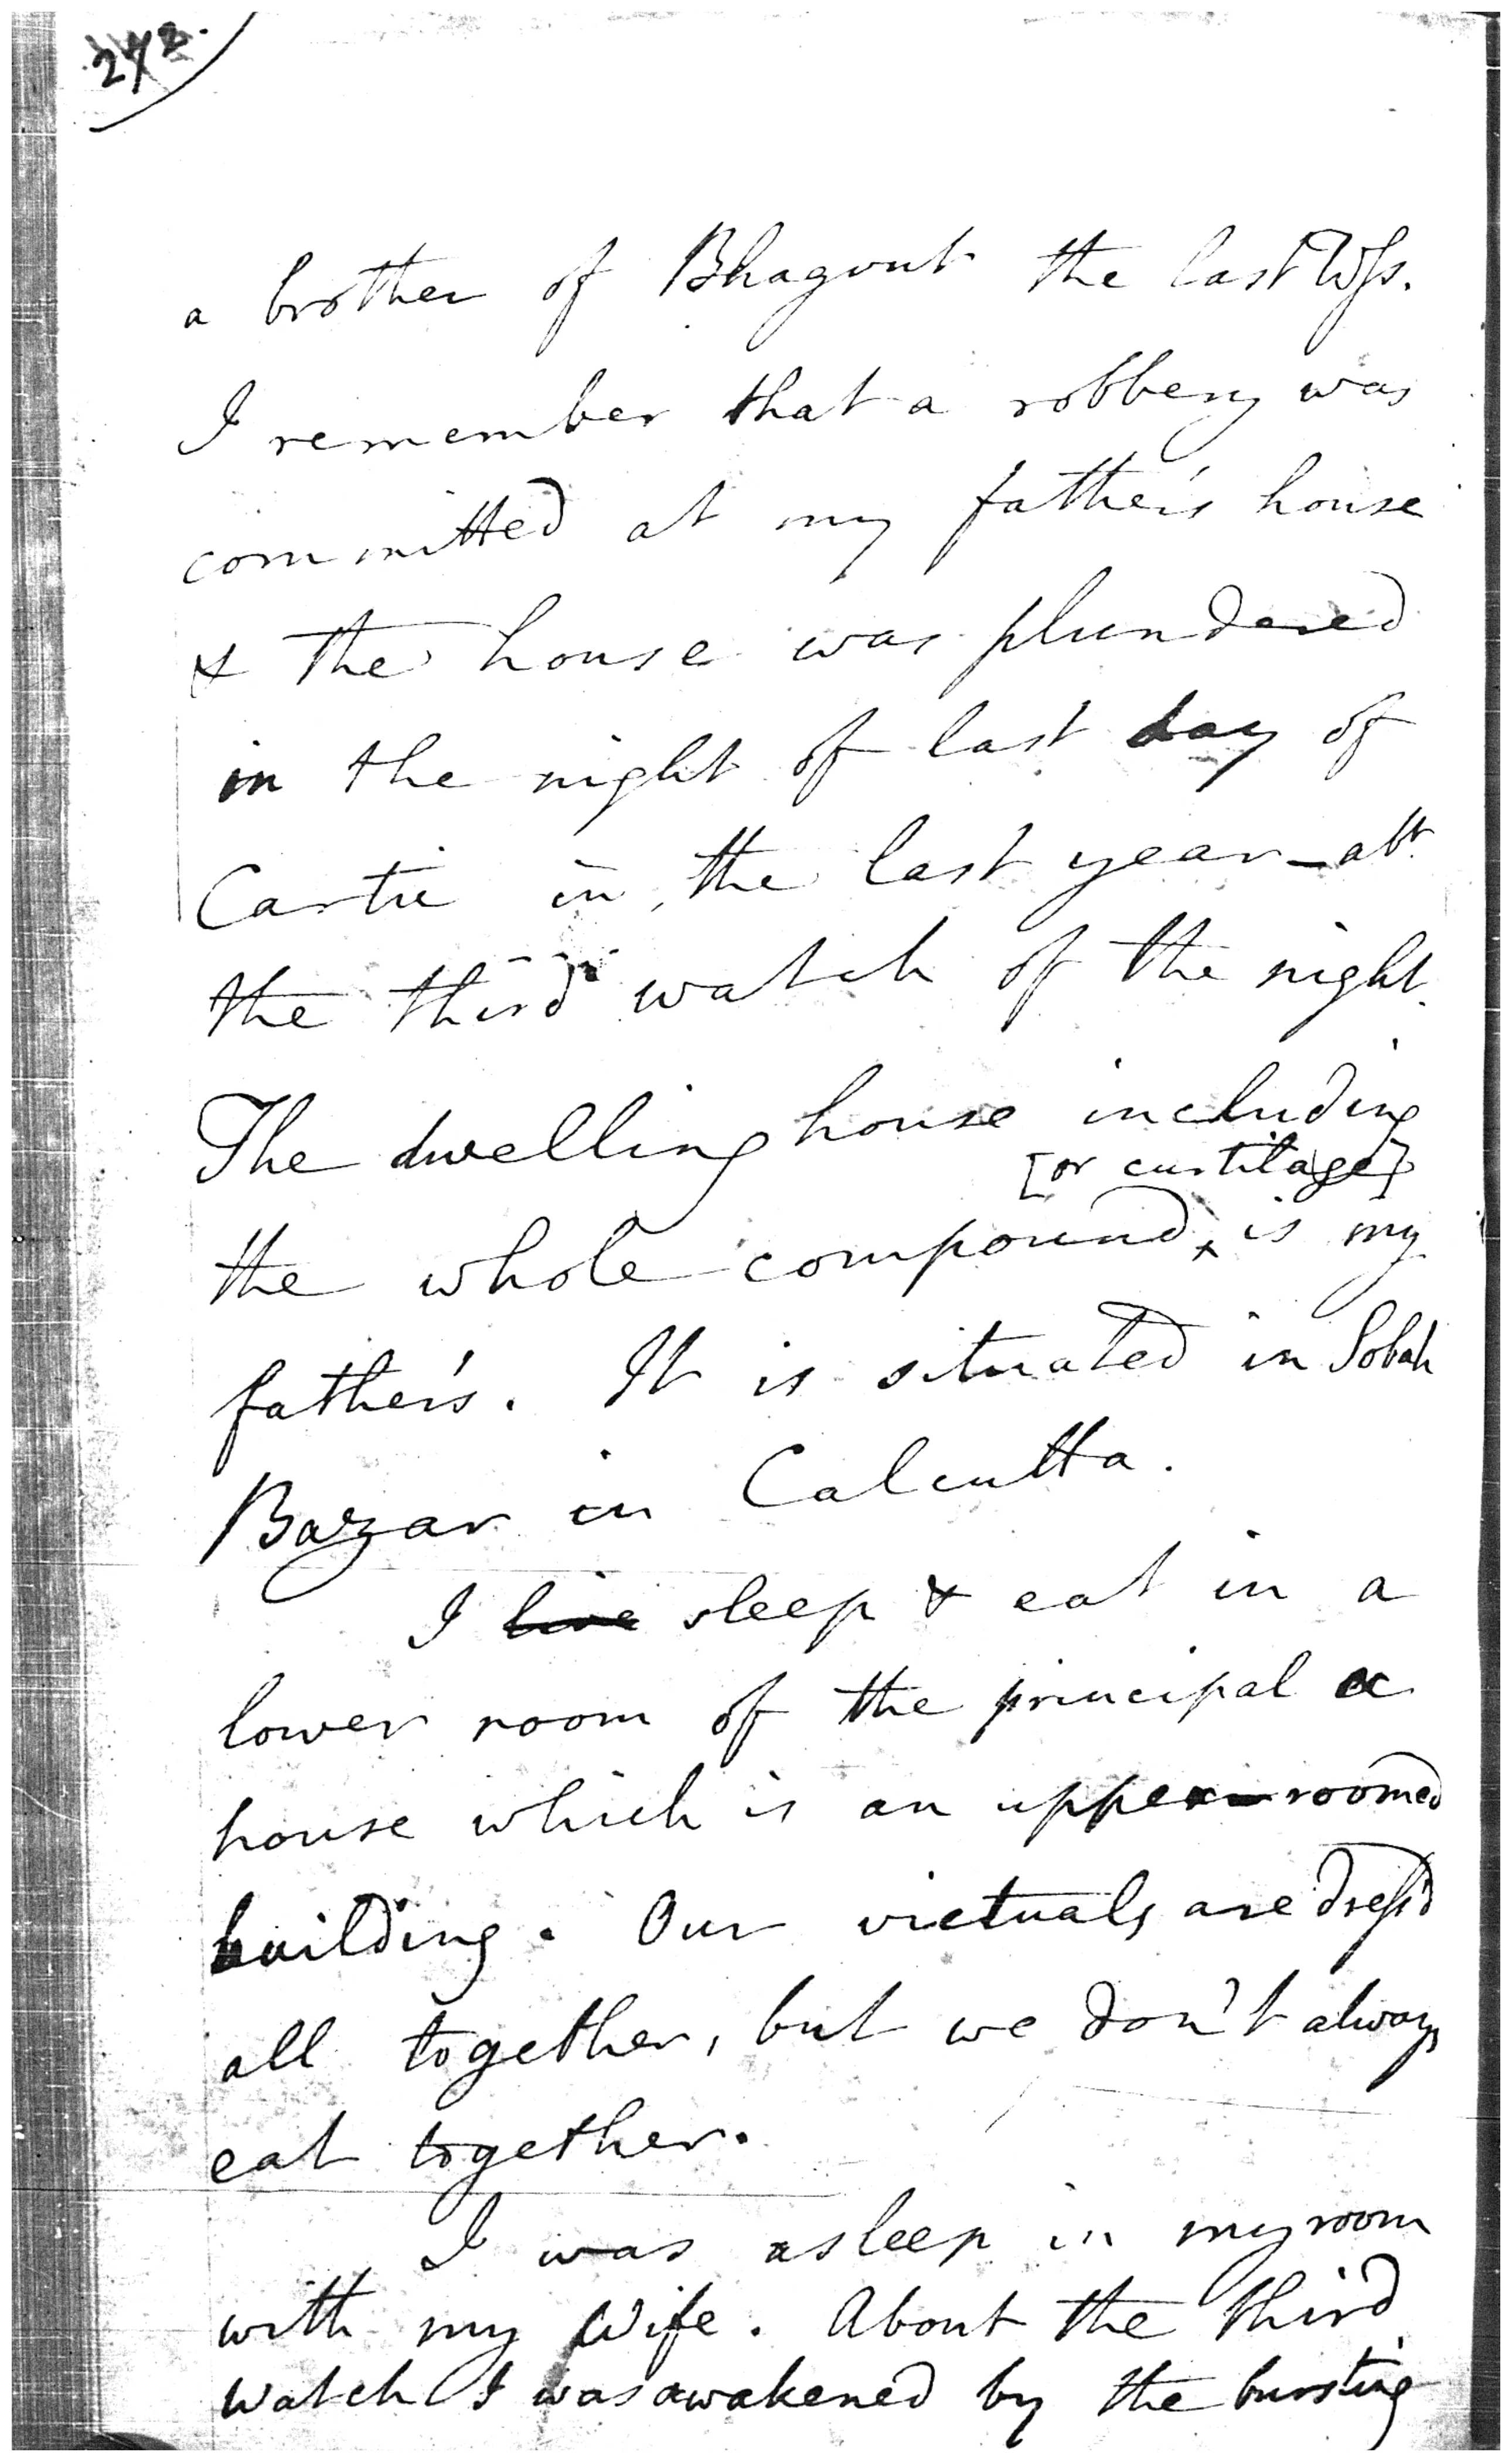 272.
a brother of Bhagvut the last Wss.
I remember that a robbery was
committed at my father's house
& the house was plundered
in the night of last day of
Cartic in the last year - abt
the third watch of the night.
The dwelling house including
[or curtilage]
the whole compound ‸ is my
father's. It is situated in Sobah
Bazar in Calcutta.
I live sleep & eat in a
lower room of the principal
house which is an upper-roomed
building. Our victuals are dress'd
all together, but we don't always
eat together.
I was asleep in my room
with my Wife. About the third
watch I was awakened by the bursting